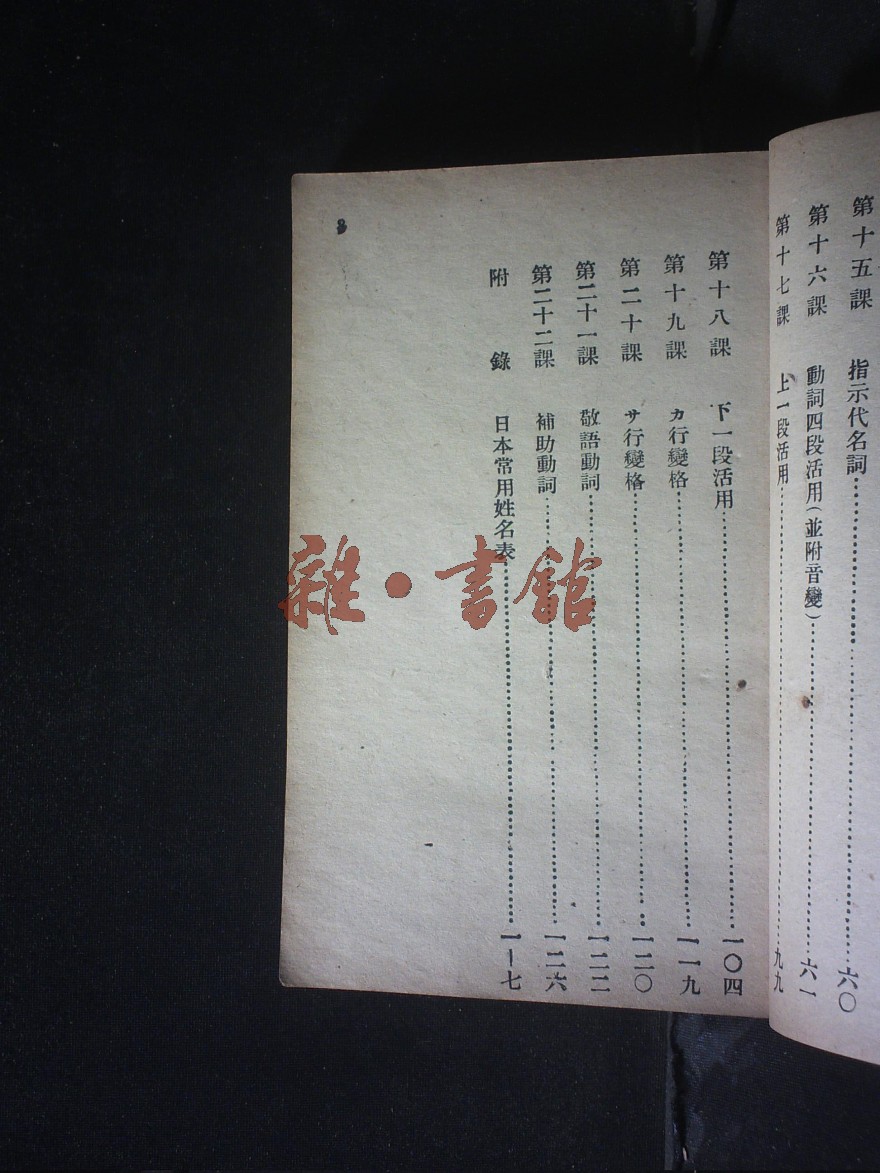 第十五課　指示代名詞……六〇
第十六課　動詞四段活用(並附音變)……六一
第十七課　上一段活用……九九
第十八課　下一段活用……一〇四
第十九課　カ行變格……一一九
第二十課　サ行變格……一二〇
第二十一課　敬語動詞……一二二
第二十二課　補助動詞……一二六
附　錄　日本常用姓名表……一—七
3
雜·書館